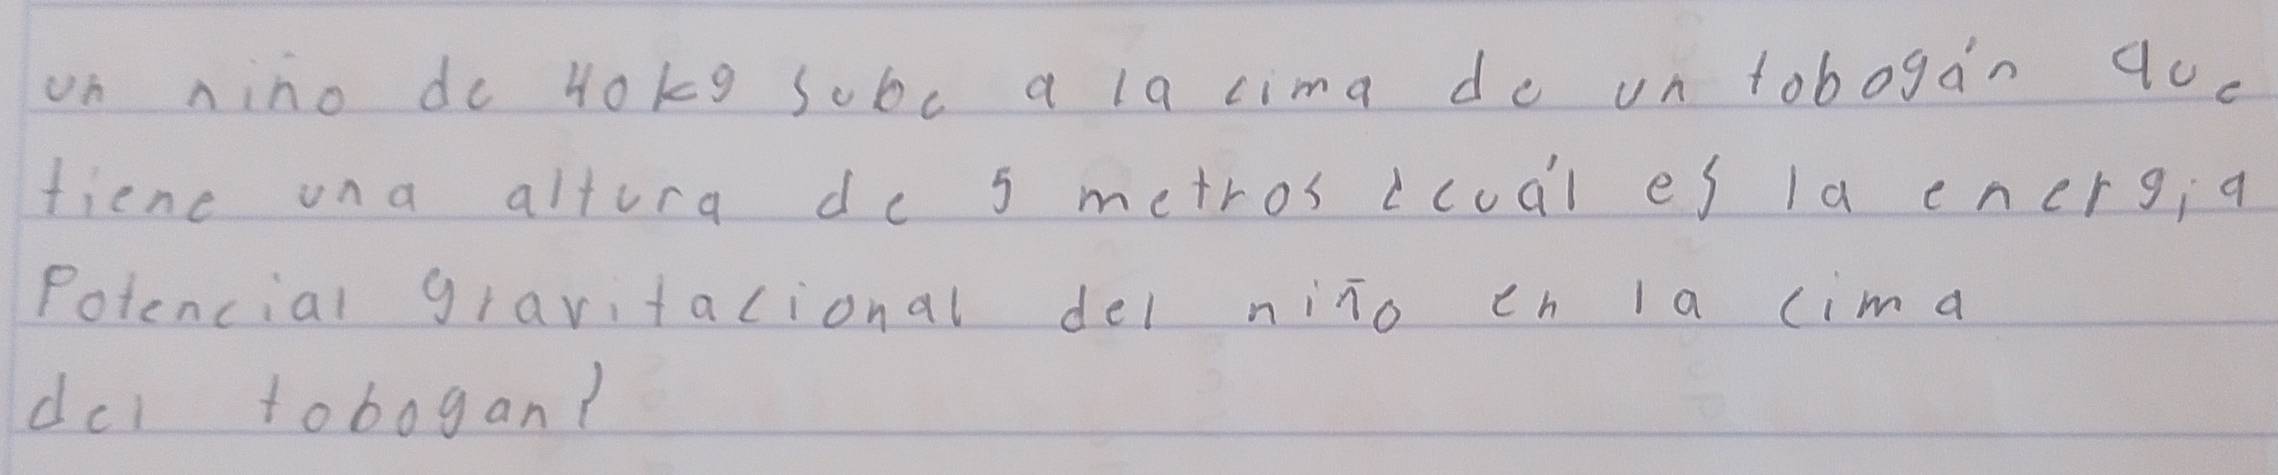 un niño de 40kg sube a la cima de un tobogán que
tiene una altura de 5 metros ¿cuál es la energia
Potencial gravitacional del niño en la cima
del tobogan?